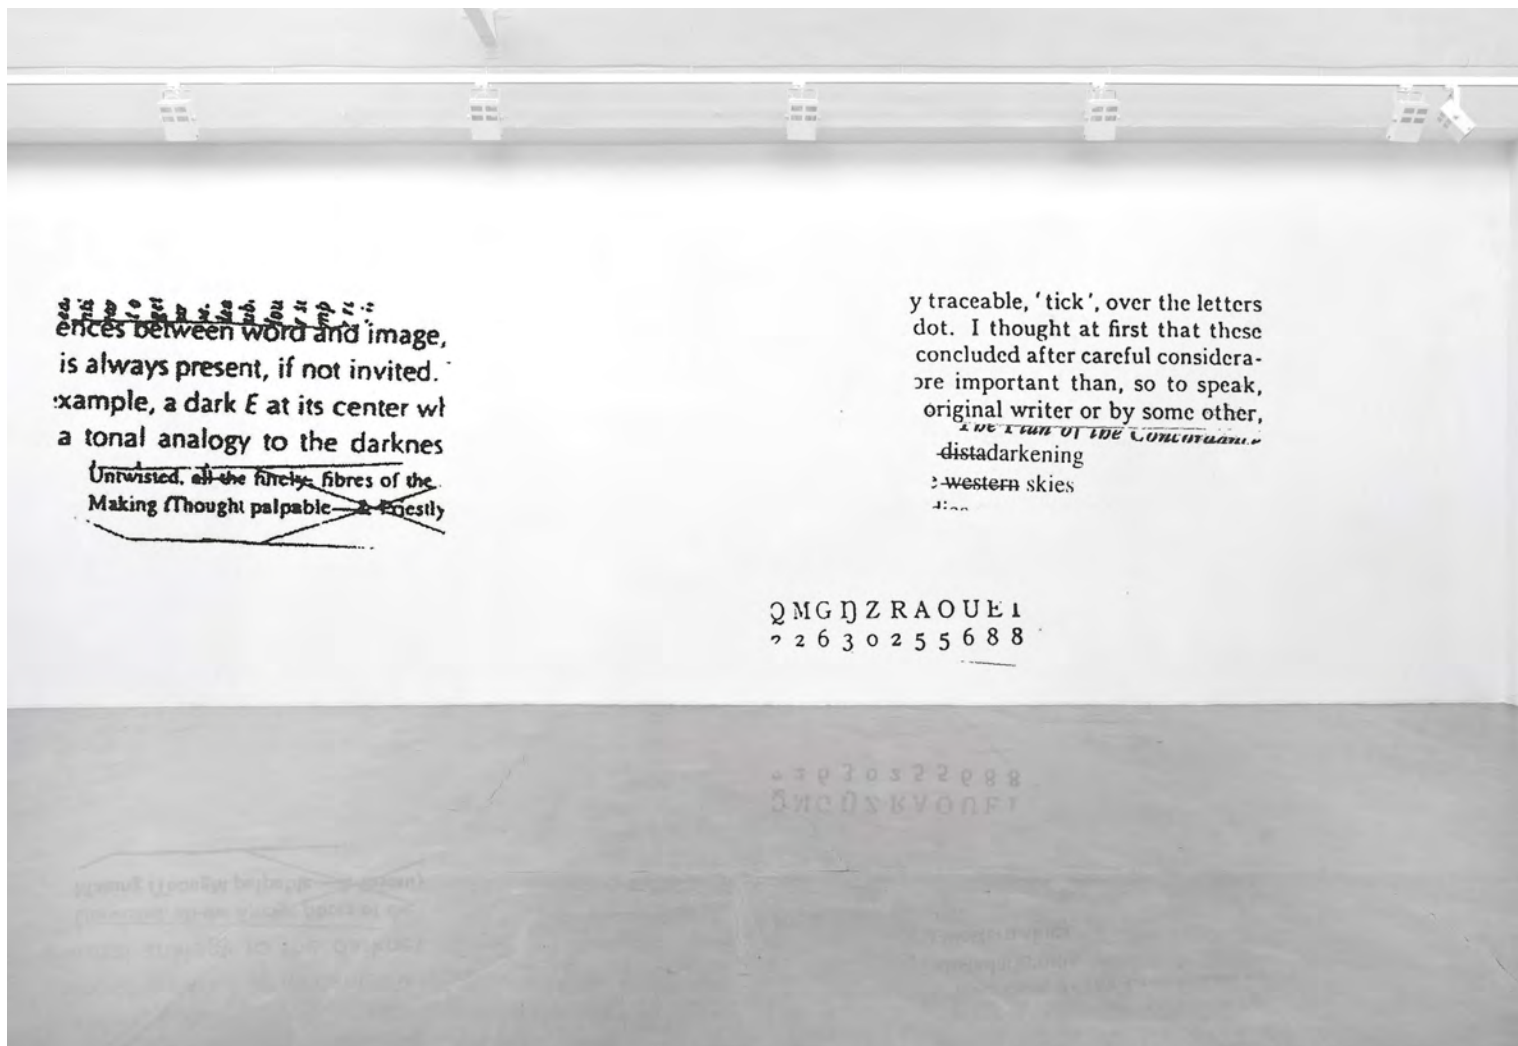 ences between word and image,
is always present, if not invited.
xample, a dark E at its center
a tonal analogy to the darknes
Untwisted, all the finely fibres of the
Making Thought palpable— & Priestly
y traceable, 'tick', over the letters
dot. I thought at first that these
concluded after careful considera-
ore important than, so to speak,
original writer or by some other,
The Plan of the Concordance
distadarkening
western skies
QMGDZRAOUEI
2 2 6 3 0 2 5 5 6 8 8